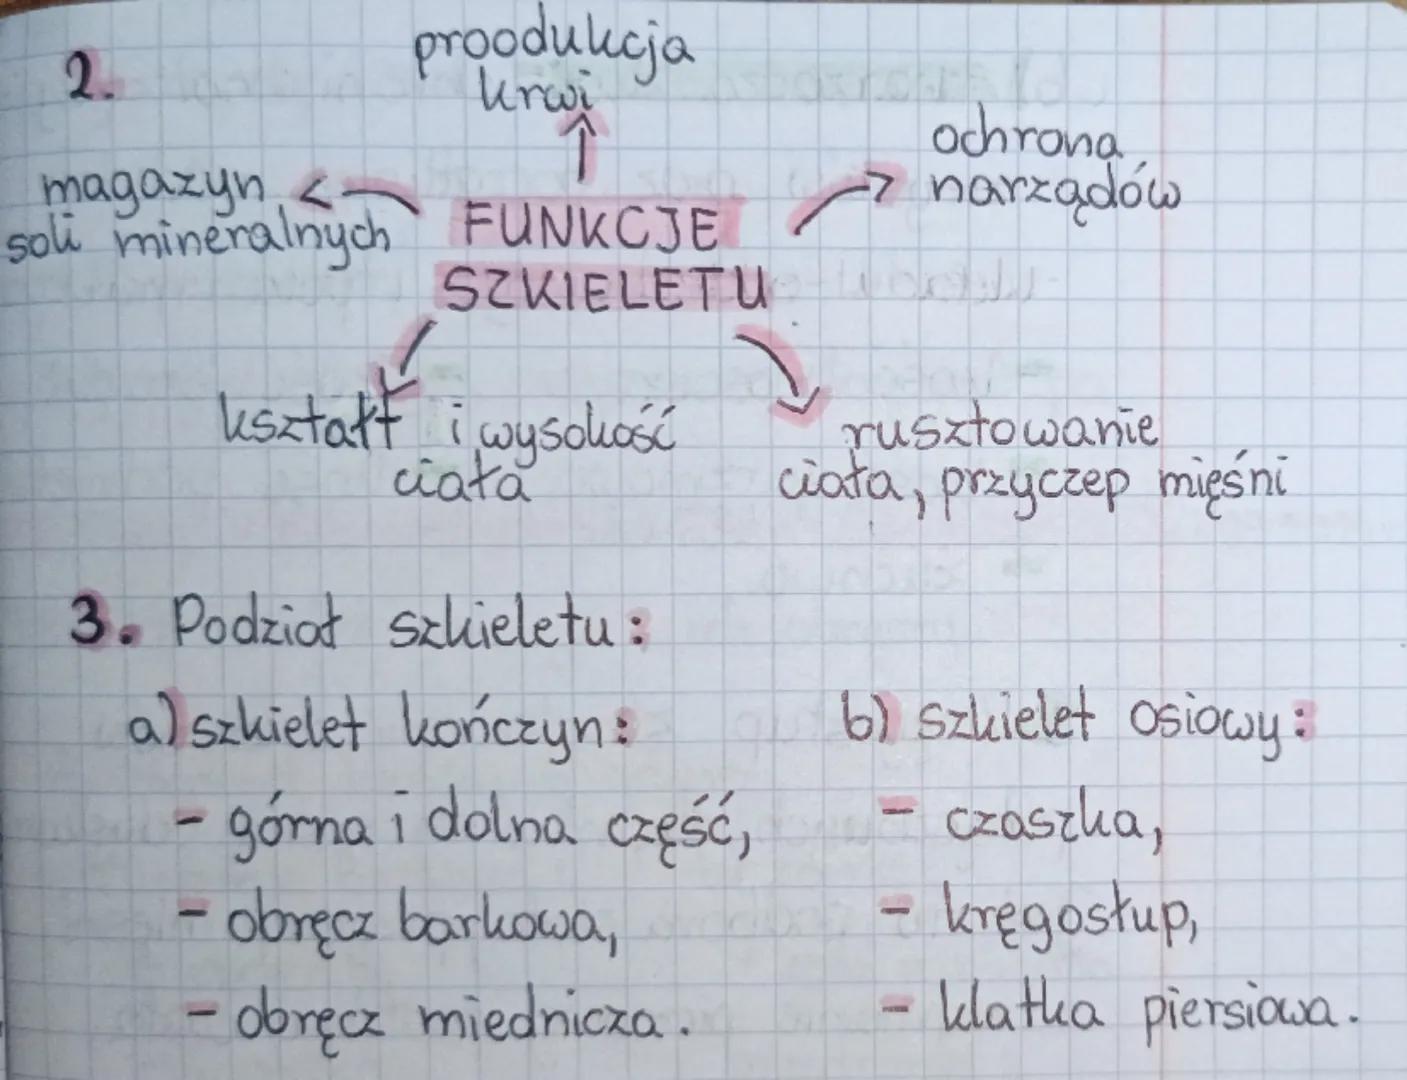 2.
proodukcja
krwi
ochrona
narządów
magazyn
soli mineralnych
FUNKCJE
SZKIELETU
kształt i wysokość
ciała
rusztowanie
ciała, przyczep mięśni
3. Podział szkieletu:
a) szkielet kończyn:
- górna i dolna część,
- obręcz barkowa,
- obręcz miednicza.
b) szkielet osiowy:
- czaszka,
- kręgosłup,
- klatka piersiowa.